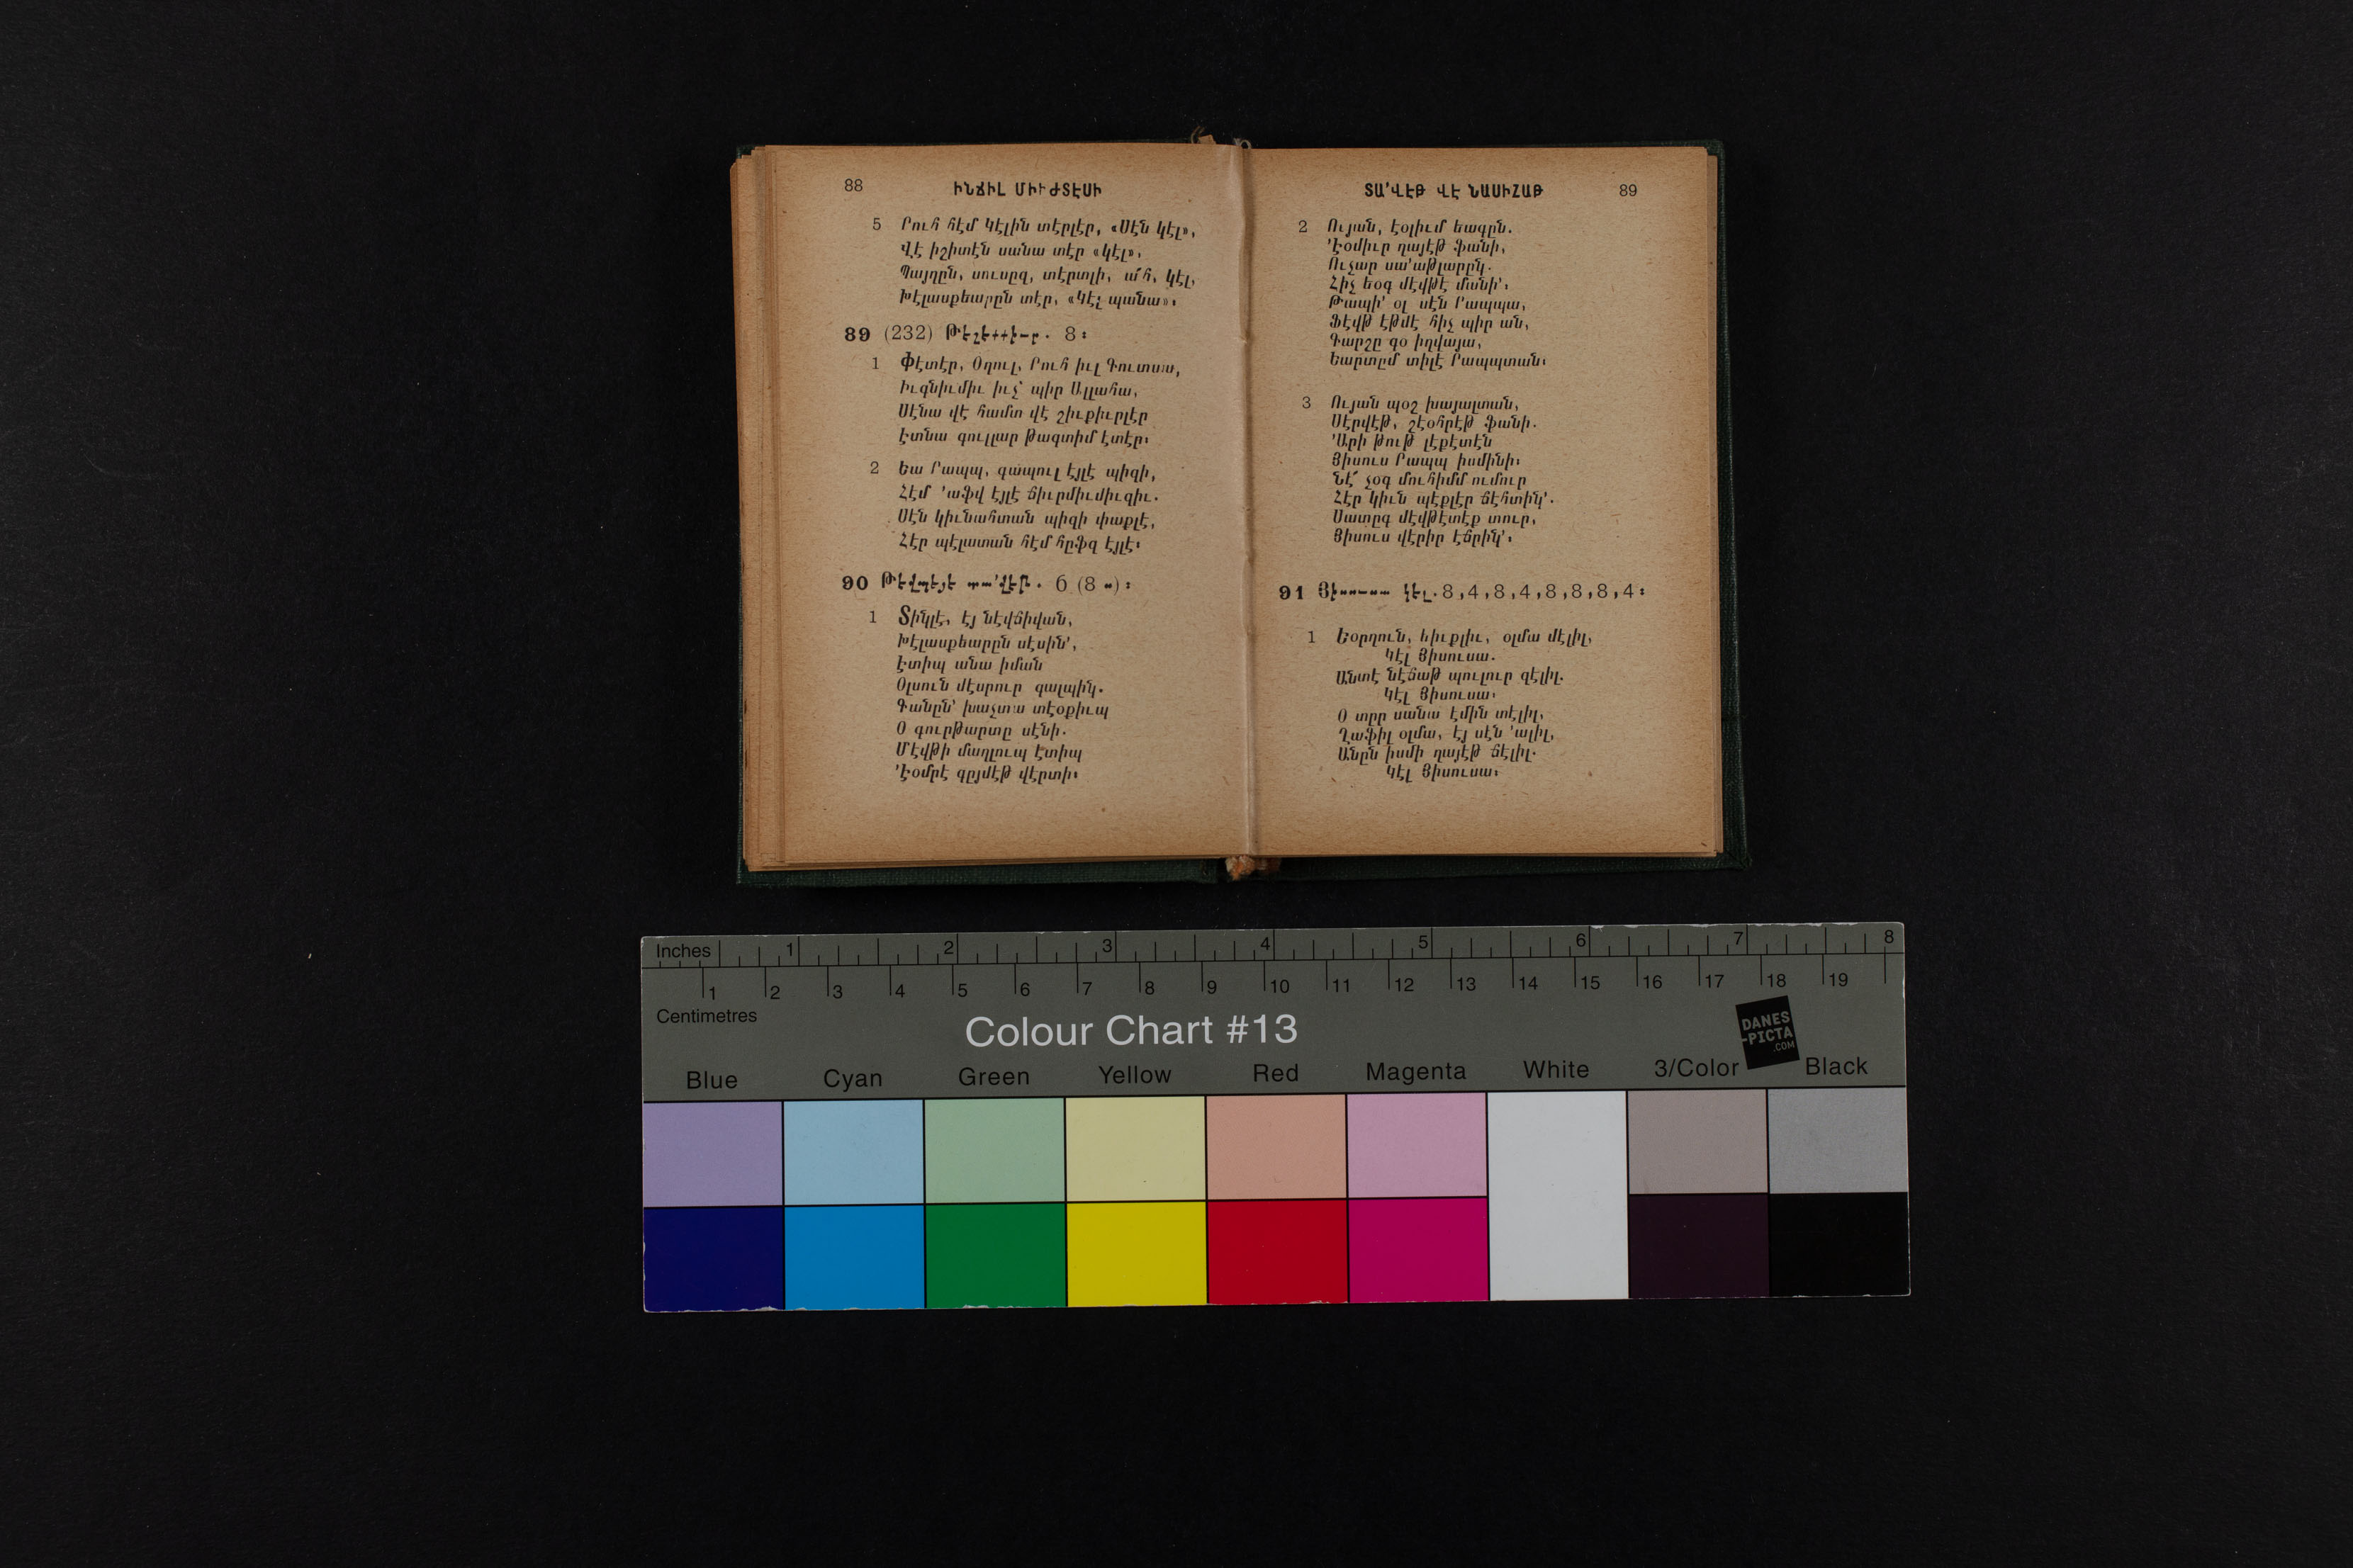 88 ԻՆՃԻԼ ՄԻՒԺՏԷՍԻ
5 Րուհ հէմ Կէլին տէրլէր, «Սէն կէլ»,
Վէ իշիտէն սանա տէր «կէլ»,
Պայղըն, սուսըզ, տէրտլի, ա՜հ, կէլ,
Խէլասքեարըն տէր, «Կէլ պանա»։
89 (232) Թէշէքքիւր. 8։
1 Փէտէր, Օղուլ, Րուհ իւլ Գուտսա,
Իւզնիւմիւ իւչ՝ պիր Ալլահա,
Սէնա վէ համտ վէ շիւքիւրլէր
Էտնա գուլլար թագտիմ էտէր։
2 Եա Րապպ, գապուլ էյլէ պիզի,
Հէմ ՚աֆվ էյլէ ճիւրմիւմիւզիւ.
Սէն կիւնահտան պիզի փաքլէ,
Հէր պէլատան հէմ հըֆզ էյլէ։
90 Թէվպէյէ տա՚վէթ. 6 (8 ս)։
1 Տինլէ, էյ նէվճիվան,
Խէլասքեարըն սէսին՚,
Էտիպ անա իման
Օլսուն մէսրուր գալպին.
Գանըն՚ խաչտա տէօքիւպ
Օ գուրթարտը սէնի.
Մէվթի մաղլուպ էտիպ
՚Էօմրէ գըյմէթ վէրտի։
ՏԱ՚ՎԷԹ ՎԷ ՆԱՍԻՀԱԹ 89
2 Ույան, էօլիւմ եագըն.
՚Էօմիւր ղայէթ ֆանի,
Ուչար սա՚աթլարըն.
Հիչ եօգ մէվթէ մանի՚։
Թապի՚ օլ սէն Րապպա,
Ֆէվթ էթմէ հիչ պիր ան,
Գարշը գօ իղվայա,
Եարտըմ տիլէ Րապպտան։
3 Ույան պօշ խայալտան,
Սէրվէթ, շէօհրէթ ֆանի.
՚Արի թութ լէքէտէն
Յիսուս Րապպ իսմինի։
Նէ՜ չօգ մուհիմմ ումուր
Հէր կիւն պէքլէր ճէհտին՚.
Սատըգ մէվթէտէք տուր,
Յիսուս վէրիր էճրին՚։
91 Յիսուսա կէլ. 8,4,8,4,8,8,8,4։
1 Եօրղուն, եիւքլիւ, օլմա մէլիլ,
Կէլ Յիսուսա.
Անտէ նէճաթ պուլուր զէլիլ.
Կէլ Յիսուսա։
Օ տըր սանա էմին տէլիլ,
Ղաֆիլ օլմա, էյ սէն ՚ալիլ,
Անըն իսմի ղայէթ ճէլիլ.
Կէլ Յիսուսա։
Inches 1 2 3 4 5 6 7 8
1 2 3 4 5 6 7 8 9 10 11 12 13 14 15 16 17 18 19
Centimetres
Colour Chart #13
DANES
-PICTA
.COM
Blue Cyan Green Yellow Red Magenta White 3/Color Black